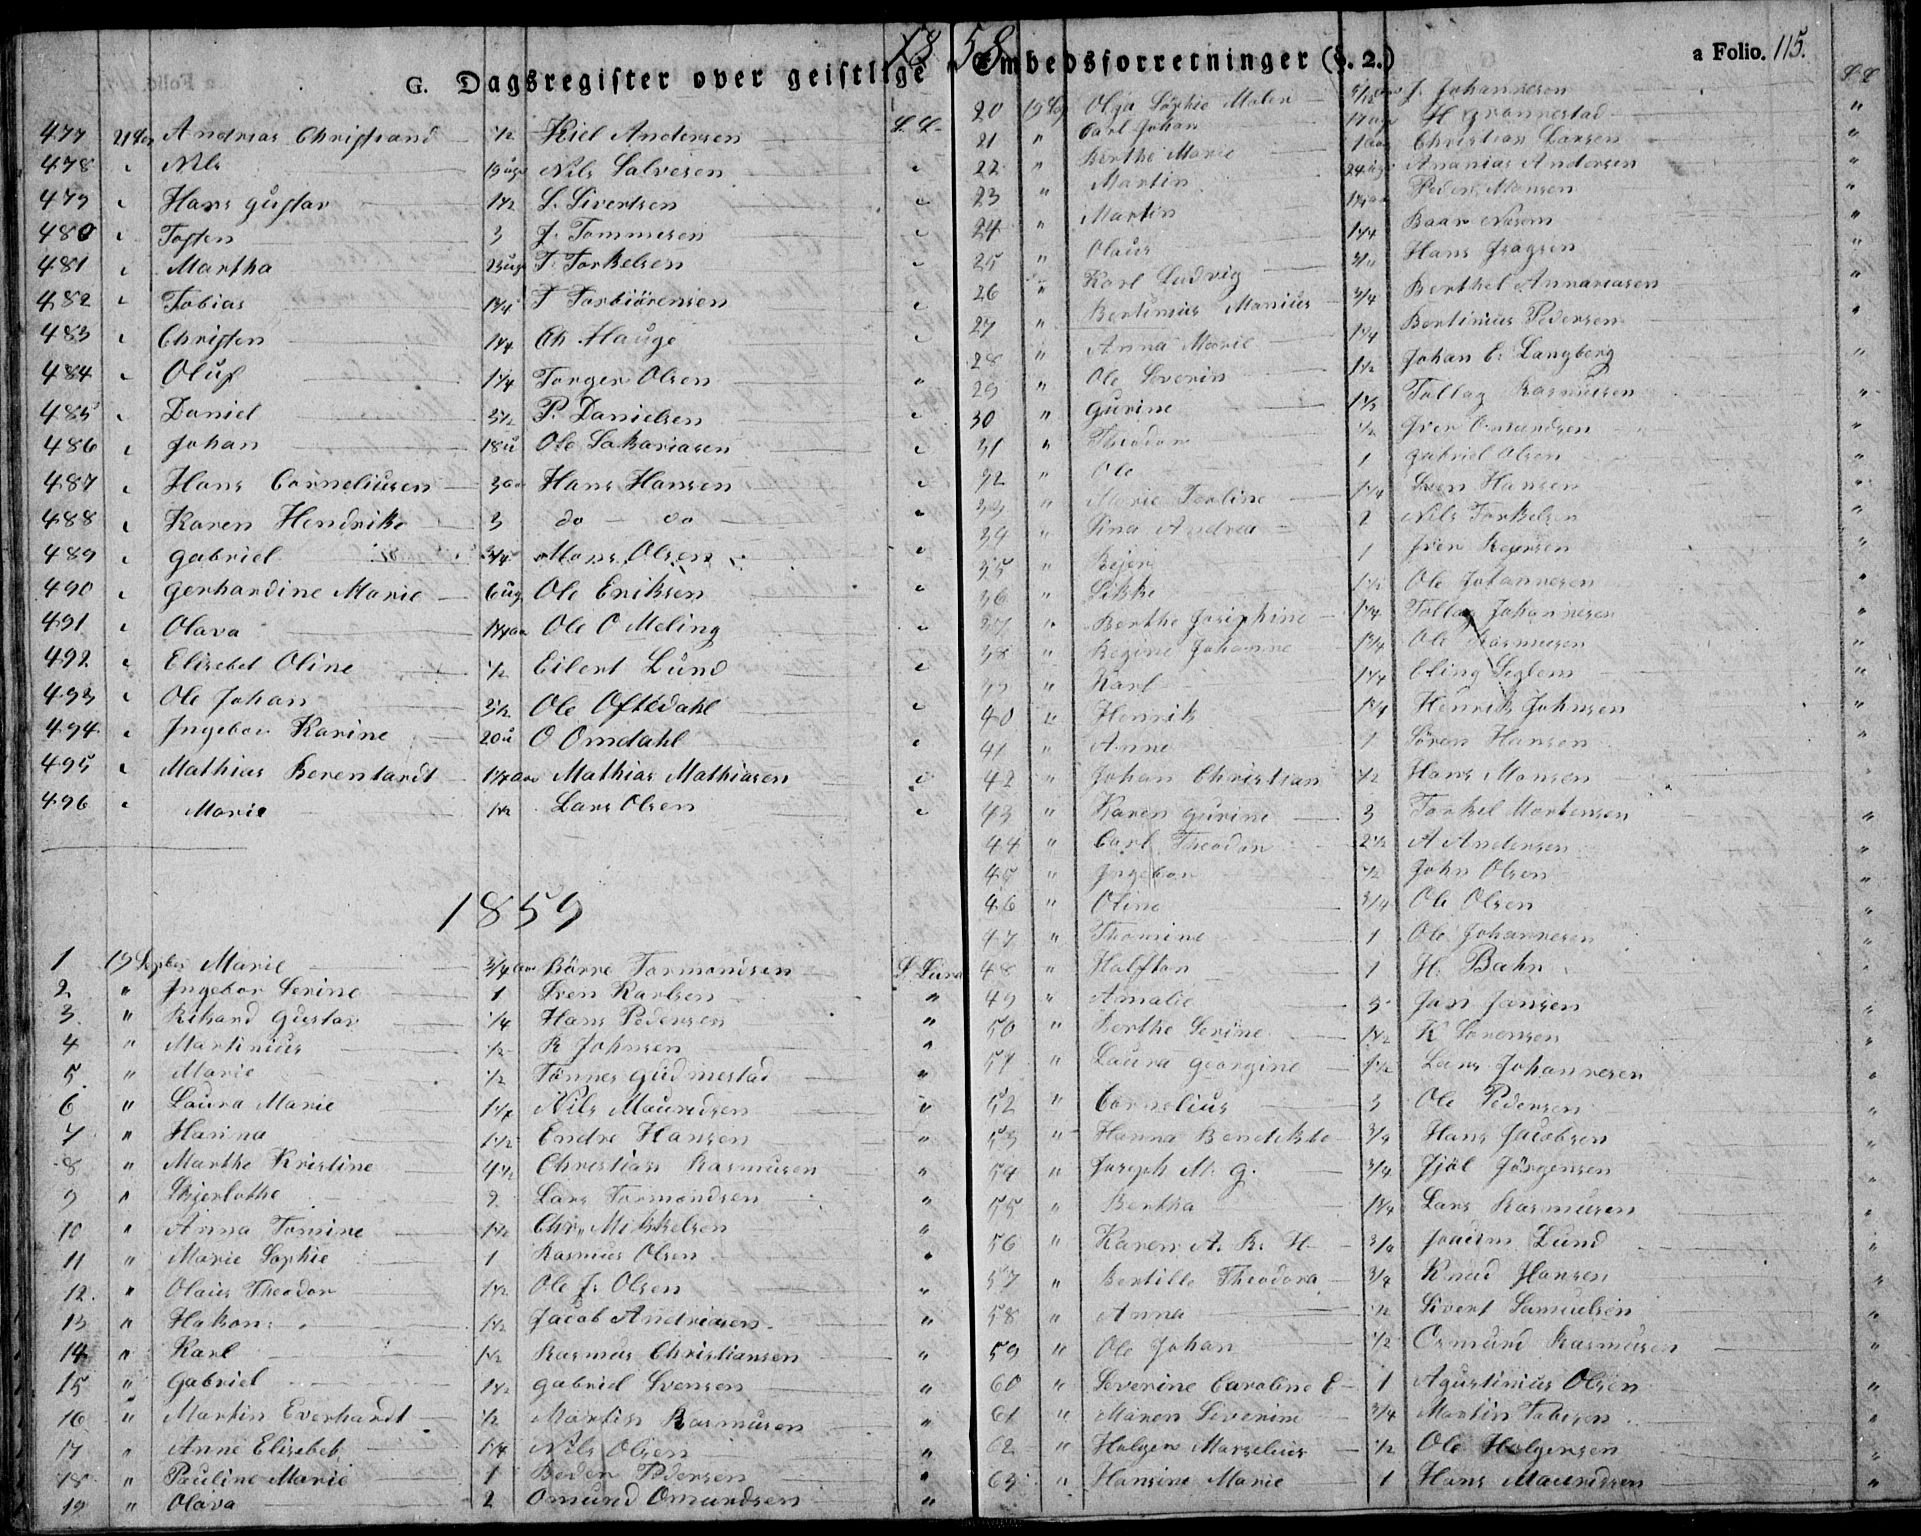 1858
G. Dagsregister over geistlige Embedsforretninger (§. 2.)
a Folio. 115.
477 Andreas Christsand 1/2 Kiel Andersen L. L.
478 Nils Nils Salvesen
479 Hans Gustav 1 1/2 L. Sivertsen
480 Tosten 3 J. Tommesen
481 Martha 23 ug T. Torkelsen
482 Tobias T Torbiörensen
483 Christen 1 1/4 Ch Hauge
484 Oluf 1 1/4 Torger Olsen "
485 Daniel 3 1/2 P. Danielsen
486 Johan 18 u Ole Sakariasen
487 Hans Corneliusen 3 aar Hans Hansen
488 Karen Hendrikke 3 do - do
489 Gabriel 3/4 Mons Olsen
490 Gerhardine Marie 6 ug Ole Eriksen
491 Olava 1 1/4 aar Ole O Meling
492 Elisebet Oline 1/2 Eilert Lund
493 Ole Johan 3 1/2 Ole Oftedahl
494 Ingebor Karine 20 u O Omdahl
495 Mathias Berenhardt Mathias Mathiasen
496 Marie 1 1/2 Lars Olsen
1859
1 19 Marie 3/4 aar Börre Tormondsen
2 " Ingebor Serine 1 Sven Karlsen "
3 " Rikard Gustav 1/4 Hans Pedersen "
4 " Martinius 1/2 R Johnsen "
5 " Marie 1/2 Tönnes Gudmestad "
6 " Laura Marie 1 1/4 Nils Mauridsen "
7 " Hanna 1 1/2 Endre Hansen "
8 " Marthe Kristine 4 1/2 Christian Rasmusen "
9 " 2 Lars Tormondsen "
10 " Anna Tomine 1 1/2 Chr. Mikkelsen "
11 " Marie Sophie 1 Rasmus Olsen "
12 " Olaus Theodor 1 1/2 Ole J. Olsen "
13 " Hakon 1 1/2 Jacob Andreasen "
14 " Karl 1 1/2 Rasmus Christiansen "
15 " Gabriel 1 1/2 Gabriel Svensen "
16 " Martin Everhardt 1/2 Martin Rasmusen "
17 " Anne Elisebet 1 1/4 Nils Olsen "
18 " Pauline Marie 1 Peder Pedersen "
19 " Olava 2 Omund Omundsen "
20 Olga Sophie Malen J. Johannesen "
21 " Carl Johan H Grönnestad "
22 " Berthe Marie 1 aar Christian Larsen "
23 " Martin Ananias Andersen "
24 " Martin Peder Monsen "
25 " Olaus 1 1/4 "
26 " Karl Ludvig Hans "
27 " Bertinius Monius 3/4 Berthel Annaniasen "
28 " Anna Marie 1 1/4 Bertinius Pedersen "
29 " Ole Severin 1 1/2 Johan C. Langberg "
30 " Gurine Tollag Rasmusen "
31 " Theodor 1/2 Iver Omundsen "
32 " Ole 1 Gabriel Olsen "
33 " Marie Torline 1 1/4 Sven Hansen "
34 " Sina Andrea 2 Nils Torkelsen "
35 " 1 Iver "
36 " Sikke Ole Johannesen "
37 " Berthe Josiphine 1 1/4 Tollag Johannesen "
38 " Regine Johanne 1 1/4 Ole Rasmusen "
39 " Karl 1 1/4 Eling Seglem "
40 " Henrik 1 1/4 Henrik Johnsen "
41 " Anne 1 Sören Hansen "
42 " Johan Christian 1/2 Hans Monsen "
43 " Karen Gurine 3 Torkel Mortensen "
44 " Carl Theodor 2 1/2 A Andersen "
45 " Ingebor 1/2 John Olsen "
46 " Oline 3/4 Ole Olsen "
47 " Thomine 1 Ole Johannesen "
48 " Halftan 1 H. Bahn "
49 " Amalie 3 Jan Jansen "
50 " Berthe Serine 1 1/2 K Sörensen "
51 " Laura Georgine 1 1/2 Lars Johannesen "
52 " Cornelius 3 Ole Pedersen "
53 " Hanna Bendikte 3/4 Hans Jacobsen "
54 " Joseph M. G. 3/4 Jörgensen "
55 " Bertha 1 1/4 Lars Rasmusen "
56 " Karen A. R. H 3/4 Joakim Lund "
57 " Bertille Theodora 3/4 Knud Hansen "
58 " Anna 1/2 Sivert Samuelsen "
59 " Ole Johan 1/2 Osmund Rasmusen "
60 " Severine Caroline E 1 Agustinius Olsen "
61 " Maren Severine 3/4 Martin "
62 " Holger Marselius 1/2 Ole Holgersen "
63 " Hansine Marie 1 Hans Mauridsen "